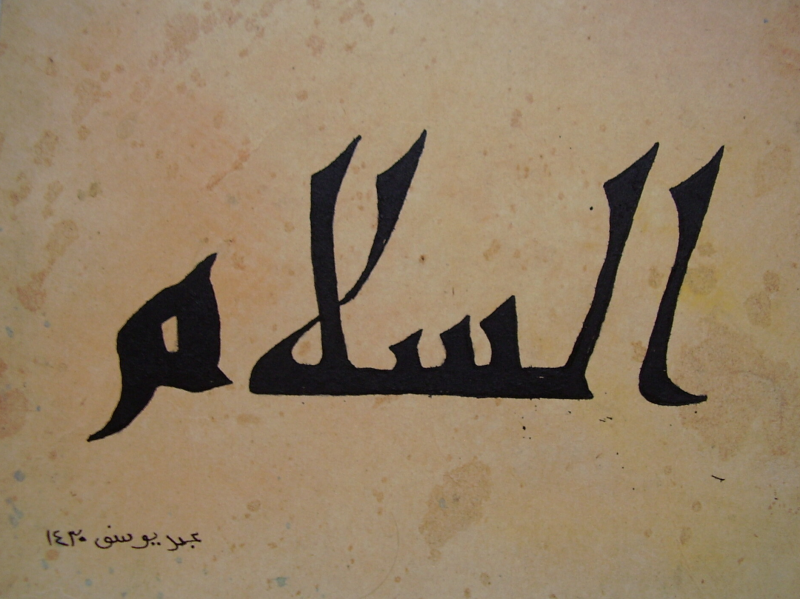 السلام
عبد يوسف ١٤٣٠